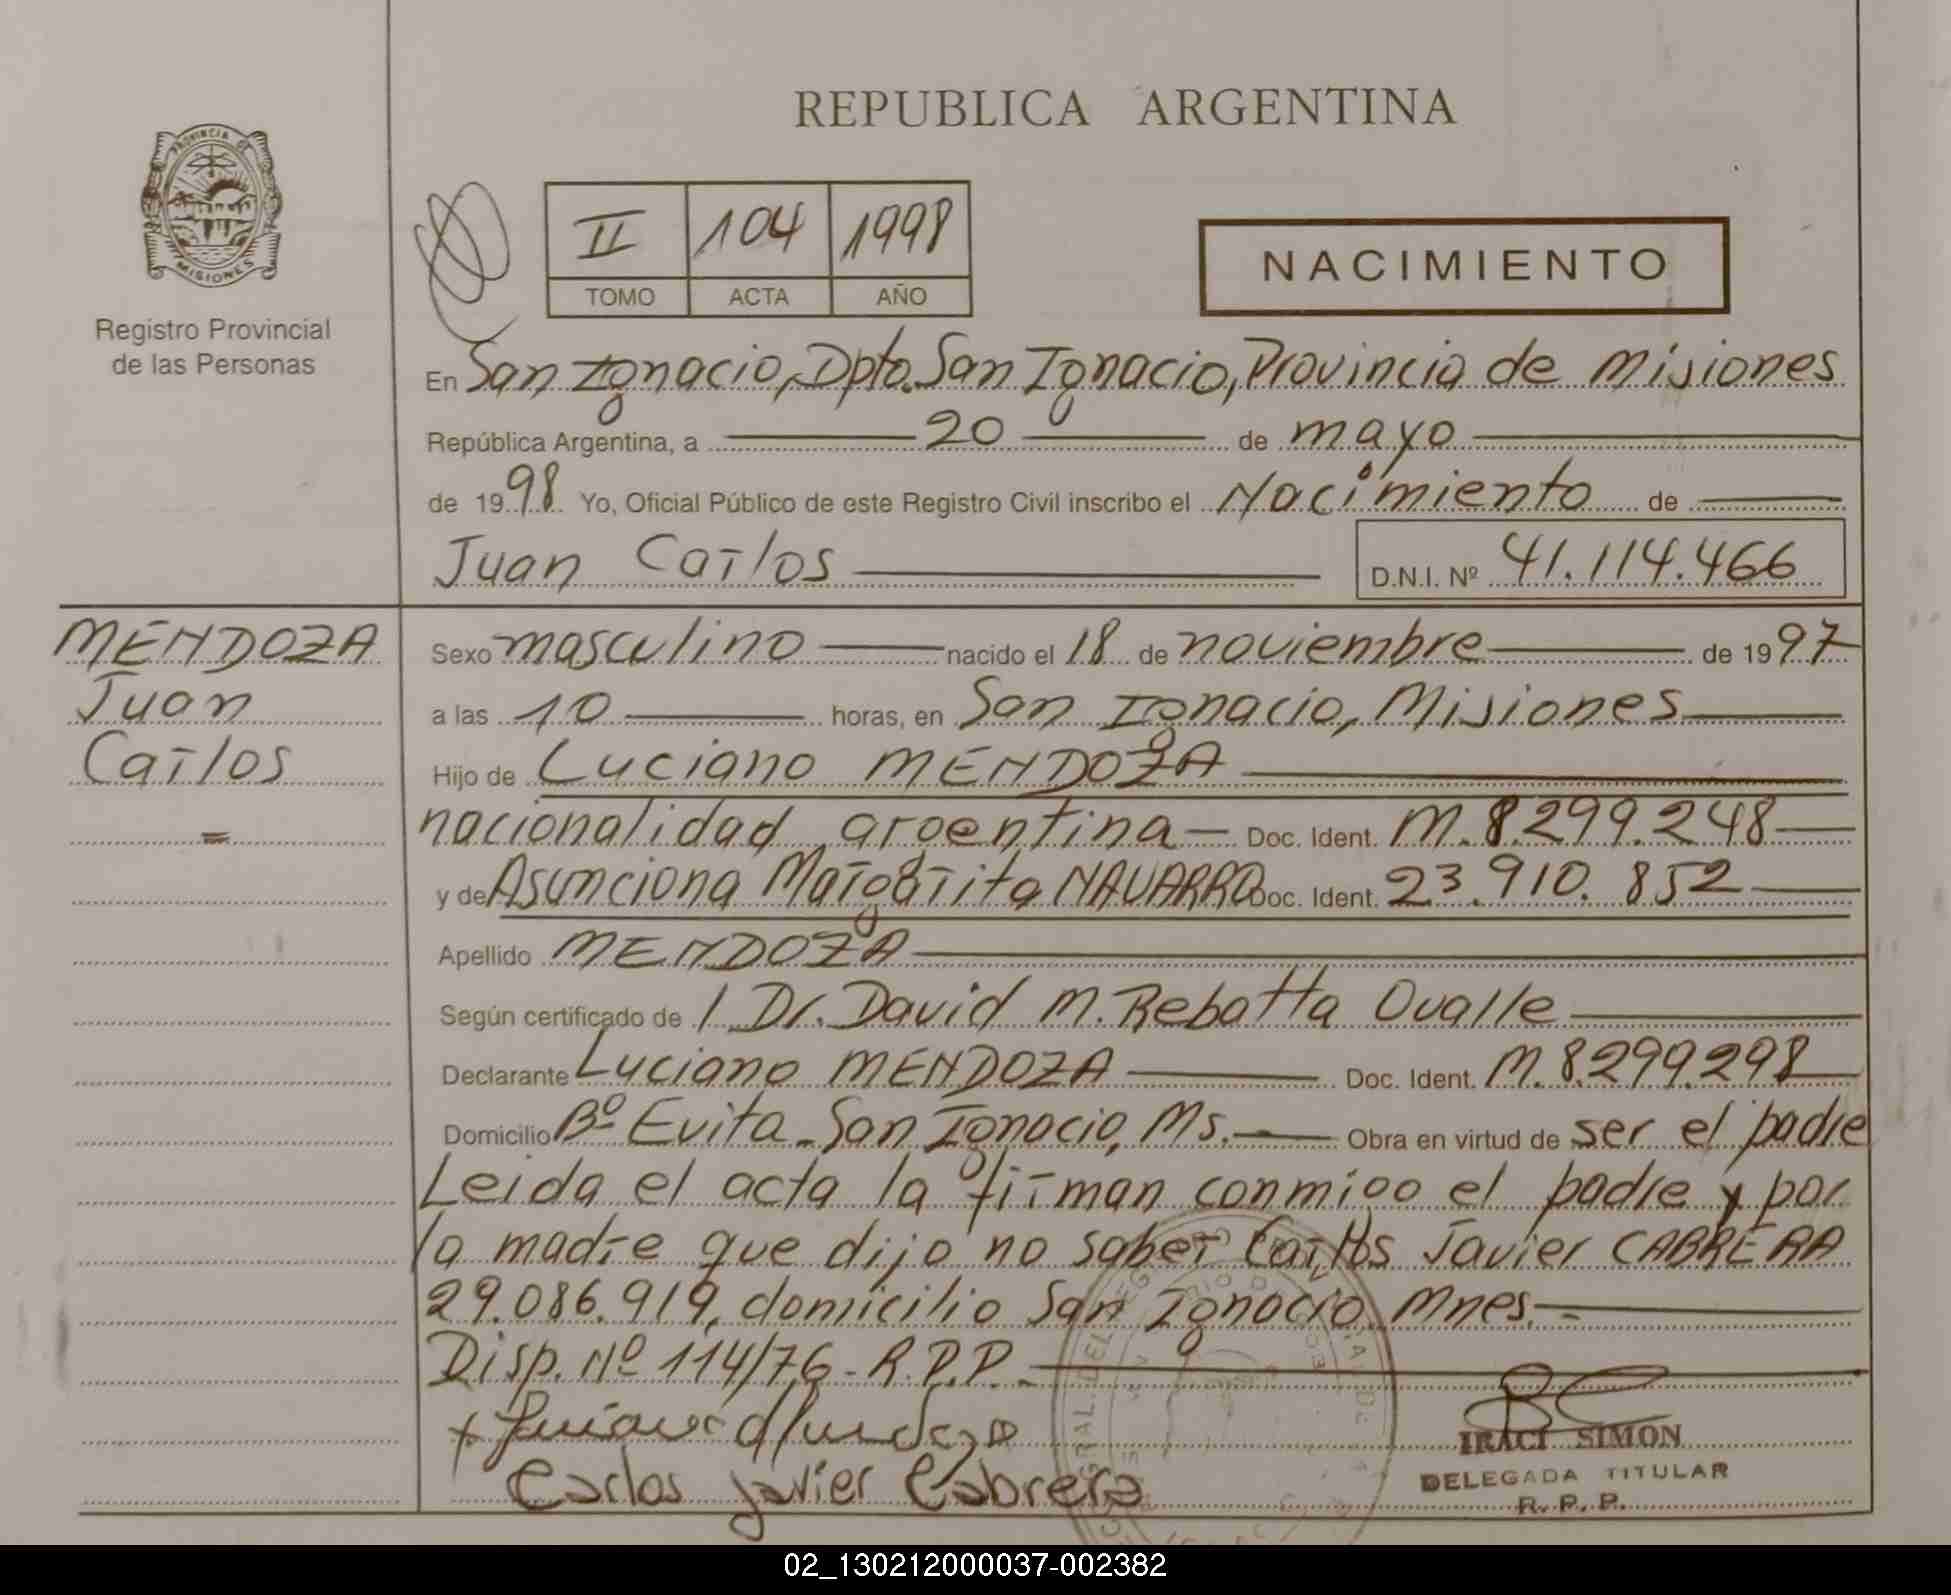 REPUBLICA ARGENTINA
PROVINCIA DE
MISIONES
Registro Provincial
de las Personas
II 104 1998
TOMO ACTA AÑO
NACIMIENTO
En San Ignacio, Dpto. San Ignacio, Provincia de Misiones
República Argentina, a 20 de mayo
de 1998 Yo, Oficial Público de este Registro Civil inscribo el Nacimiento de
Juan Carlos D.N.I. Nº 41.114.466
MENDOZA
Juan
Carlos
Sexo masculino nacido el 18 de noviembre de 1997
a las 10 horas, en San Ignacio, Misiones
Hijo de Luciano MENDOZA
nacionalidad argentina Doc. Ident. M. 8.299.248
y de Asunciona Margarita NAVARRO Doc. Ident. 23.910.852
Apellido MENDOZA
Según certificado de 1 Dr. David M. Rebatta Ovalle
Declarante Luciano MENDOZA Doc. Ident. M. 8.299.298
Domicilio Bº Evita - San Ignacio, Ms. Obra en virtud de ser el padre
Leida el acta la firman conmigo el padre y por
la madre que dijo no saber Carlos Javier CABRERA
29.086.919, domicilio San Ignacio Mnes.-
Disp. Nº 114/76 - R.P.P.-
Carlos Javier Cabrera
IRACI SIMON
DELEGADA TITULAR
R. P. P.
02_130212000037-002382